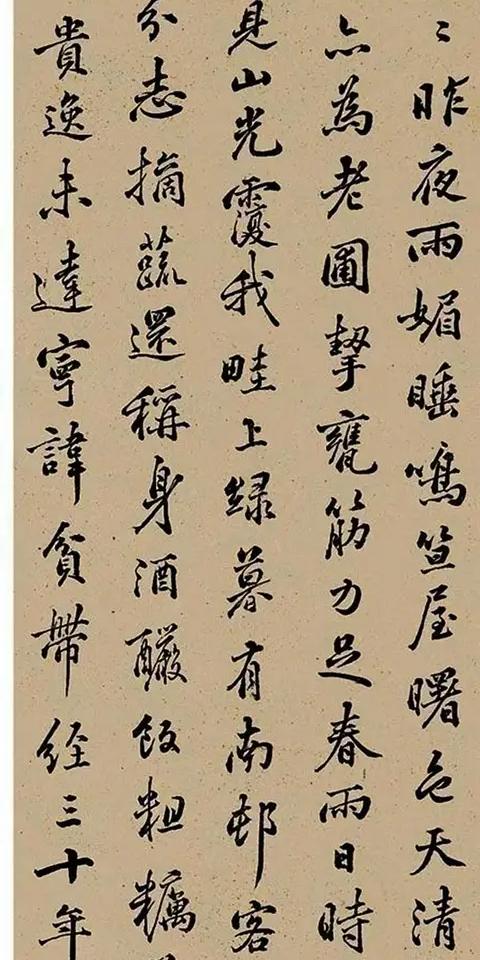 〻昨夜雨媚睡鳴笪屋曙色天清
亦為老圃挈甕筋力足春雨日時
見山光覆我畦上緑暮有南邨客
分志摘蔬還稱身酒釅飯粗糲
貴逸未達寧諱貧帶経三十年